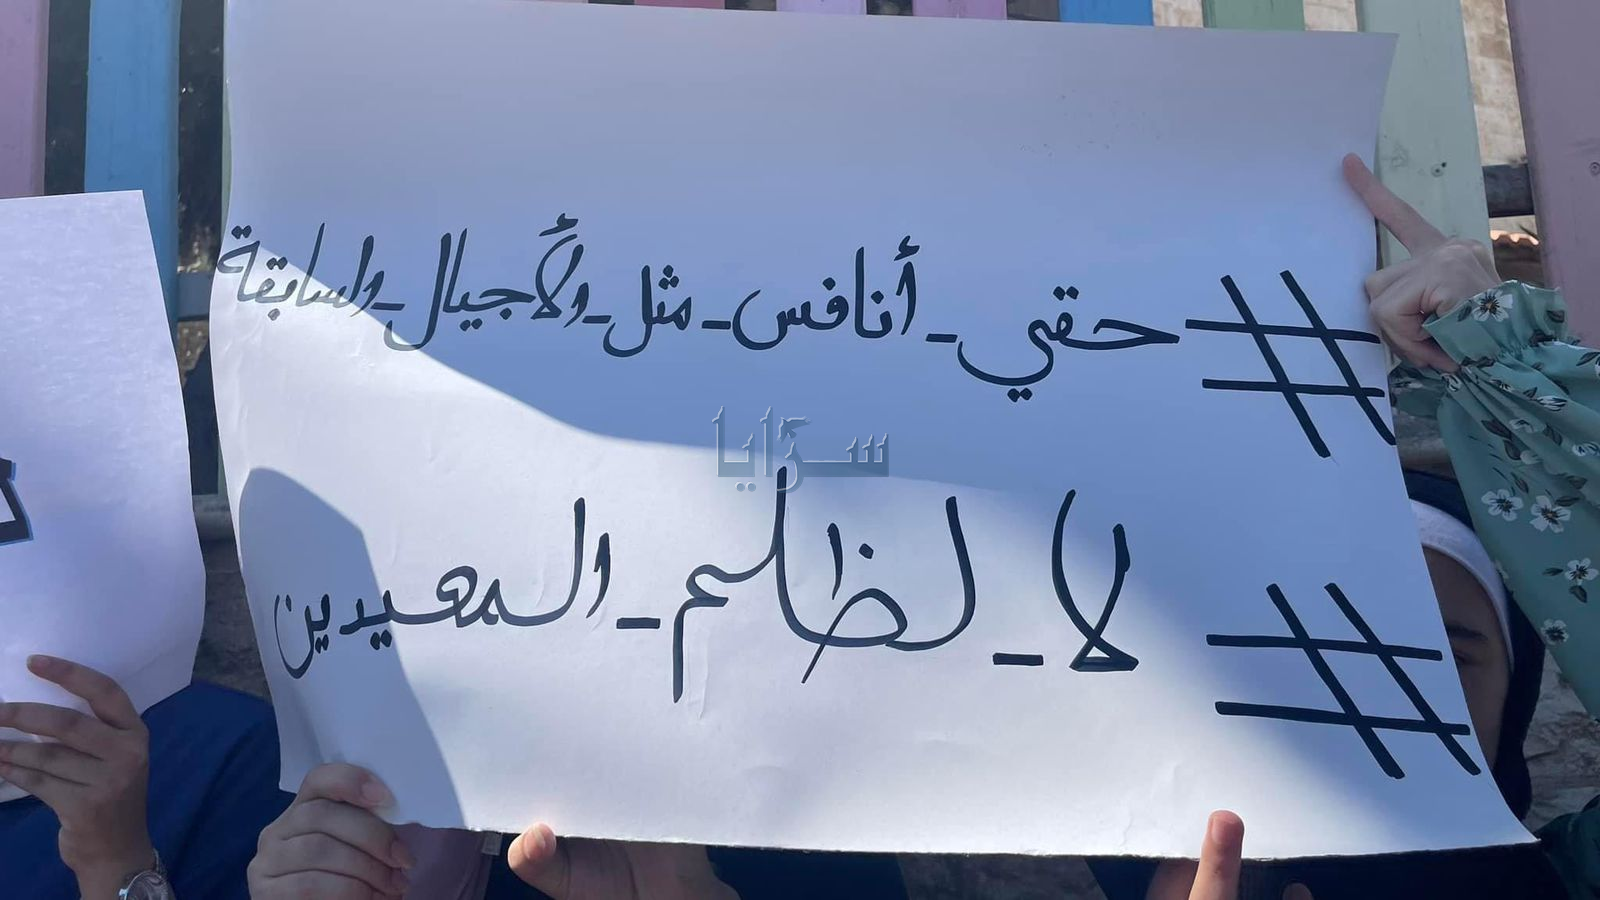 #حقي_أنافس_مثل_الأجيال_السابقة
سرايا
#لا_لظلم_المعيدين